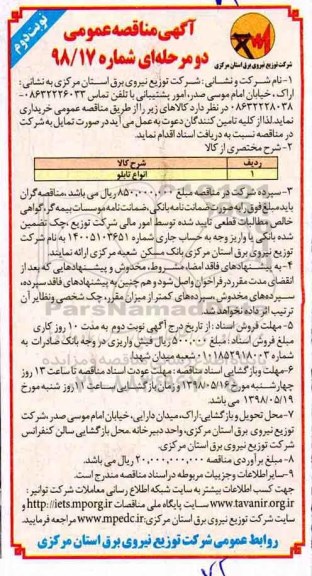 نوبت دوم
آگهی مناقصه عمومی
دو مرحله‌ای شماره ۹۸/۱۷
شرکت توزیع نیروی برق استان مرکزی
۱-نام شرکت و نشانی: شرکت توزیع نیروی برق استان مرکزی به نشانی:
اراک، خیابان امام موسی صدر، امور پشتیبانی با تلفن تماس ۰۸۶۳۲۲۲۶۰۳۳-
۰۸۶۳۲۲۲۸۰۳۸ در نظر دارد کالاهای زیر را از طریق مناقصه عمومی خریداری
نماید.لذا از کلیه تامین کنندگان دعوت به عمل می آید در صورت تمایل به شرکت
در مناقصه نسبت به دریافت اسناد اقدام نماید.
۲- شرح مختصری از کالا
ردیف شرح کالا
۱ انواع تابلو
۳-سپرده شرکت در مناقصه مبلغ ۸۵۰,۰۰۰,۰۰۰ ریال می باشد، مناقصه گران
باید مبلغ فوق را به صورت ضمانت نامه بانکی، ضمانت نامه موسسات بیمه گر، گواهی
خالص مطالبات قطعی تایید شده توسط امور مالی شرکت توزیع ،چک تضمین
شده بانکی یا واریز وجه به حساب جاری شماره ۱۴۰۰۵۱۰۳۶۵۱ به نام شرکت
توزیع نیروی برق استان مرکزی بانک مسکن شعبه مرکزی ارائه نمایند.
۴-به پیشنهادهای فاقد امضاء، مشروط، مخدوش و پیشنهادهایی که بعد از
انقضای مدت مقرر در فراخوان واصل شود و هم چنین به پیشنهادهای فاقد سپرده،
سپرده‌های مخدوش، سپرده‌های کمتر از میزان مقرر، چک شخصی و نظایر آن
ترتیب اثر داده نخواهد شد.
۵- مهلت فروش اسناد : از تاریخ درج آگهی نوبت دوم به مدت ۱۰ روز کاری
مبلغ فروش اسناد : مبلغ ۵۰۰,۰۰۰ ریال فیش واریزی در وجه بانک صادرات به
شماره ۰۱۰۱۸۵۳۹۱۸۰۰۳ شعبه میدان شهدا
۶-مهلت و بازگشایی اسناد مناقصه: مهلت عودت اسناد مناقصه تا ساعت ۱۳ روز
چهارشنبه مورخ ۱۳۹۸/۰۵/۱۶ و زمان بازگشایی ساعت ۱۰ روز شنبه مورخ
۱۳۹۸/۰۵/۱۹ می باشد.
۷- محل تحویل و بازگشایی: اراک، میدان دارایی، خیابان امام موسی صدر، شرکت
توزیع نیروی برق استان مرکزی، واحد دبیرخانه .محل بازگشایی سالن کنفرانس
شرکت توزیع نیروی برق استان مرکزی.
۸- مبلغ برآوردی مناقصه ۲۰,۰۰۰,۰۰۰,۰۰۰ ریال می باشد.
۹- سایر اطلاعات و جزییات مربوطه در اسناد مناقصه مندرج است.
جهت کسب اطلاعات بیشتر به سایت شبکه اطلاع رسانی معاملات شرکت توانیر :
www.tavanir.org.ir سایت پایگاه ملی مناقصات http://iets.mporg.ir و
سایت شرکت توزیع نیروی برق استان مرکزی: www.mpedc.ir مراجعه فرمایید.
روابط عمومی شرکت توزیع نیروی برق استان مرکزی